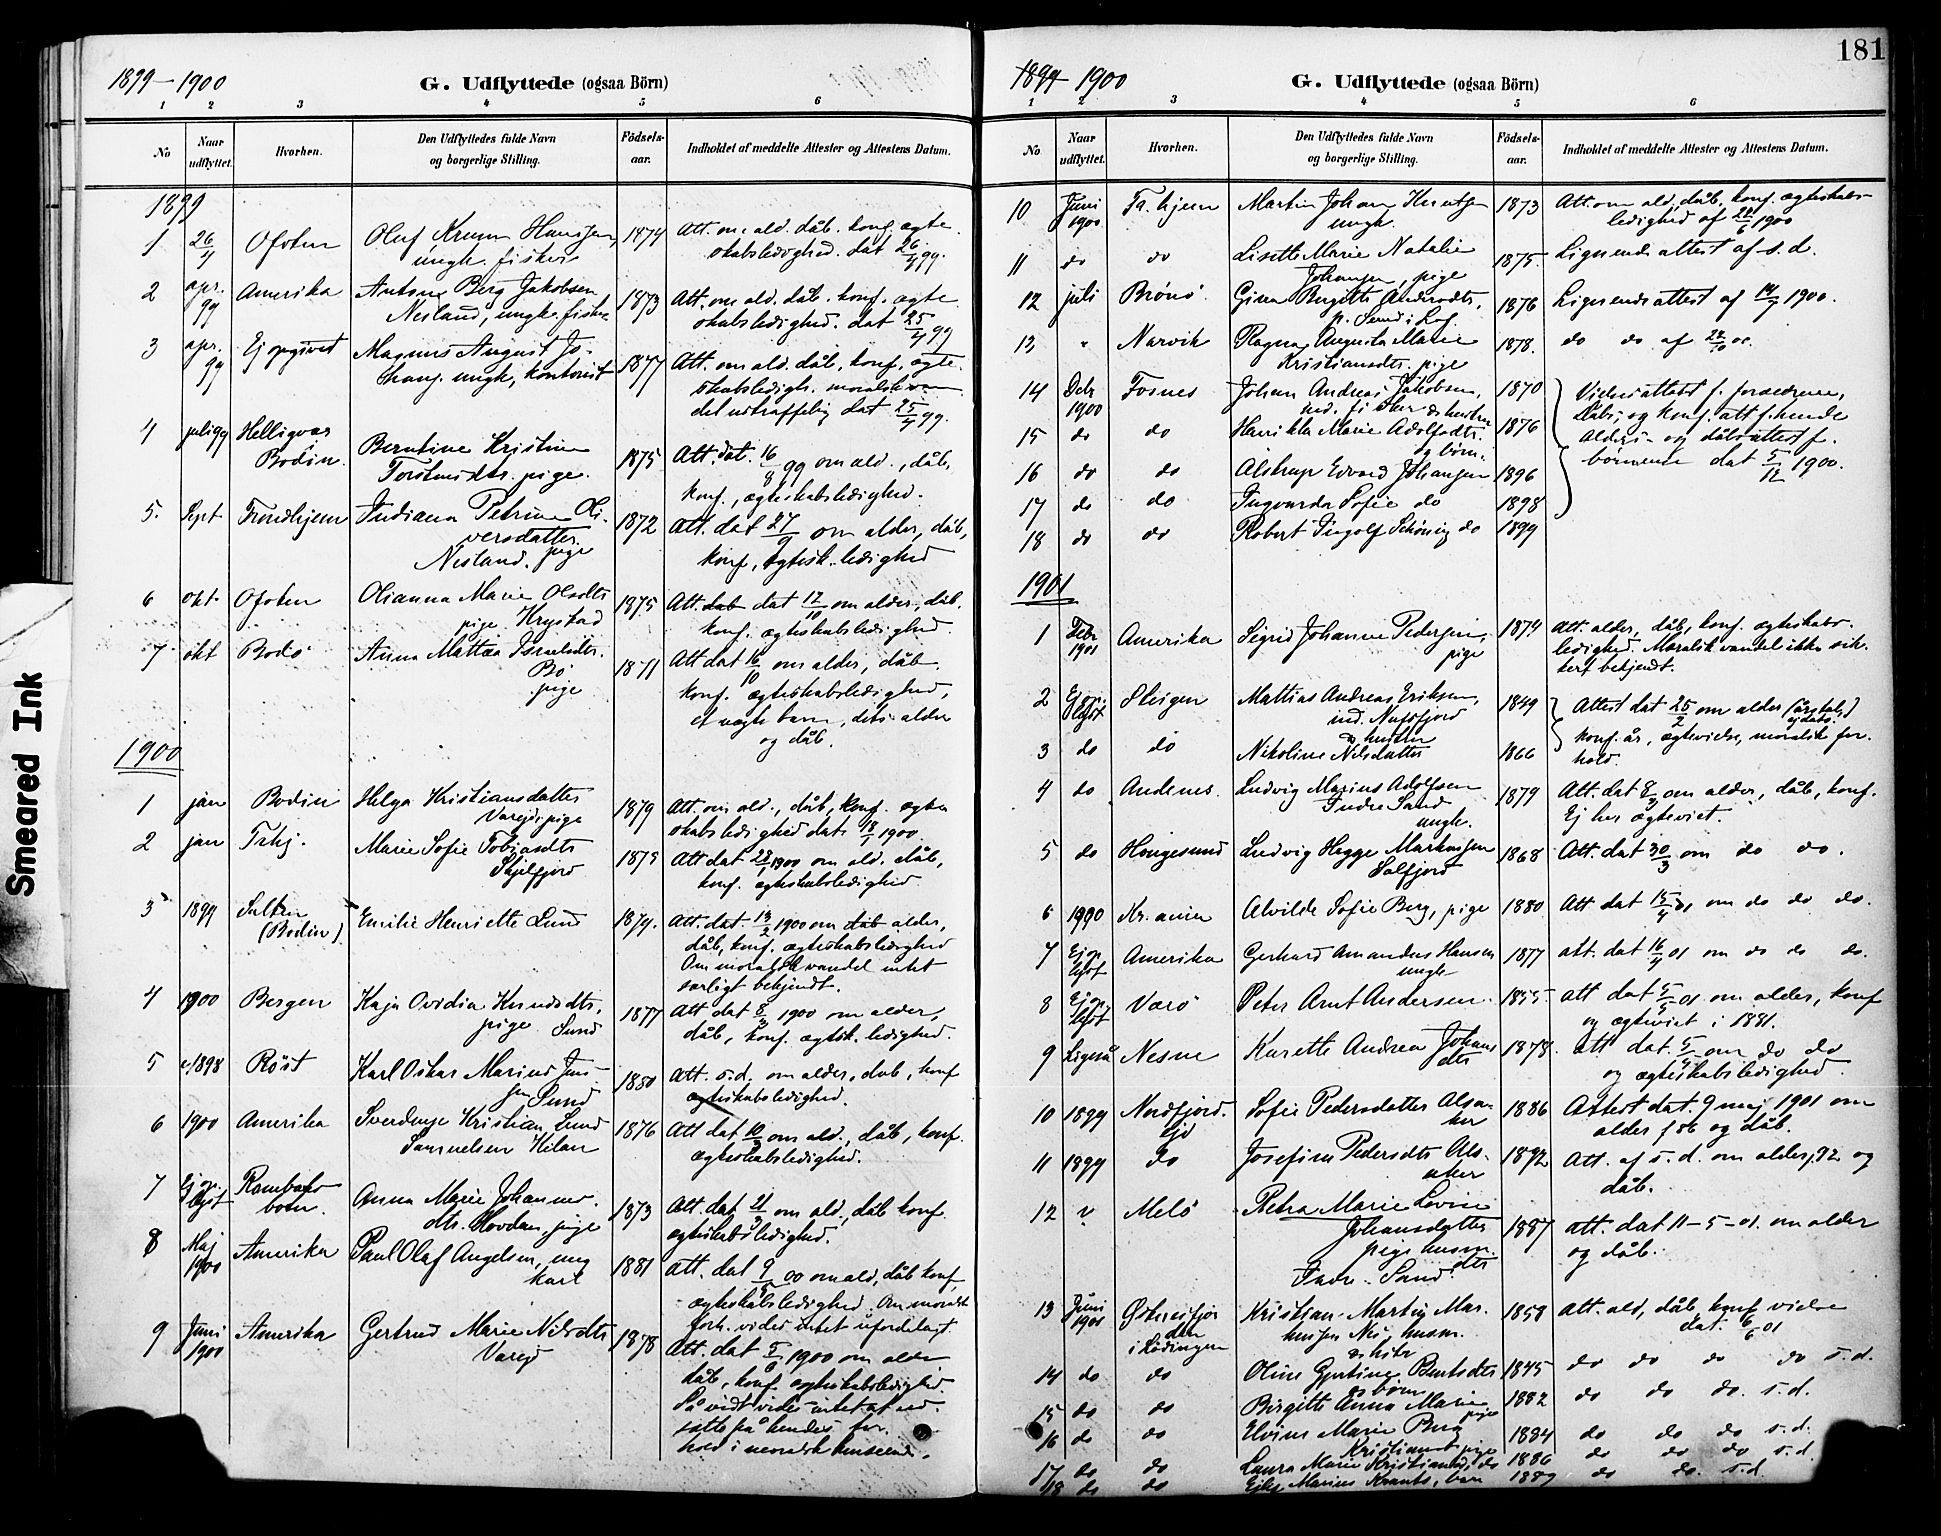 1899-1900
G. Udflyttede (ogsaa Börn)
1 2 3 4 5 6
No
Naar udflyttet.
Hvorhen.
Den Udflyttedes fulde Navn og borgerlige Stilling.
Födsels-aar.
Indholdet af meddelte Attester og Attestens Datum.
1899
1 26/4 Ofoten Oluf Krumm Hansen, 1874 Att. om ald. dåb. konf. ægte
ungk. fisker skabsledighed. dat 26/4 99.
2 apr. 99 Amerika Antone Berg Jakobsen 1873 Att. om ald. dåb. konf. ægte
Nesland, ungk. fisker skabsledighed. dat 25/4 99
3 apr. 99 Ej opgivet Magnus August Jo- 1877 Att. om ald. dåb, konf. ægte.
hans. ungk, kontorist skabsledigh. moralsk van
del ustraffelig dat 25/4 99.
4 juli 99 Helligvær Bodin. Berntine Kristine 1875 Att. dat. 16/8 99 om ald., dåb,
pige. konf., ægteskabsledighed.
5. Sept Trondhjem Indiana Petrine Oli- 1872 Att. dat 27/9 om alder, dåb,
versdatter konf, ægtesk. ledighed
Nesland. pige
6 okt. Ofoten Olianna Marie Olsdtr 1875 Att. dat 12/10 om alder, dåb.
pige Krystad konf. ægteskabsledighed.
7 okt Bodö Anna Mattea 1871 Att dat 16/10 om alder, dåb.
Bö konf. ægteskabsledighed,
pige et uægte barn, dets alder
og dåb.
1900
1 jan Bodin Helga Kristiansdatter 1879 Att, om ald., dåb, konf. ægte
pige skabsledighed dat. 18/1 1900.
2 jan Trhj. Marie Sofie Tobiasdtr 1875 Att dat 1900 om ald. dåb,
Skjelfjord konf. ægteskabsledighed.
3 1899 Salten (Bodin) Emilie Henriette Lund 1879. Att. dat. 13/2 1900 om alder,
dåb, konf. ægteskabsledighed
Om moralsk vandel intet
særligt bekjendt.
4 1900 Bergen Kaja Ovidia Knudsdtr, 1877 Att dat 1900 om alder,
pige Sund dåb, konf. ægtsk. ledighed.
5 1898 Röst Karl Oskar Marius Jen- 1880 Att. s.d. om alder, dåb, konf
sen Sund ægteskabsledighed.
6 1900 Amerika Sverdrup Kristian Lund 1876 Att dat 10/3 om ald., dåb, konf.
Samuelsen ægteskabsledighed.
7 Ej oplyst Rombaks botn. Anna Marie Johannes- 1873 Att. dat 21/3 om ald, dåb konf.
dtr. Hovden, pige ægteskabsledighed.
8 Maj 1900 Amerika Paul Olaf Angelsen, ung 1881 Att. dat 00 om ald, dåb konf,
karl ægteskabsledighed. Om moralsk
forh. vides intet ufordelagt.
9 Juni 1900 Amerika Gertrud Marie Nilsdtr 1878 Att. dat 1900 om alder
dåb, konf. ægteskabsledighed.
Så vidt vides intet at ud-
sætte på hendes for-
hold i moralsk henseende.
181
1899 1900
G. Udflyttede (ogsaa Börn)
1 2 3 4 5 6
No
Naar udflyttet.
Hvorhen.
Den Udflyttedes fulde Navn og borgerlige Stilling.
Födsels-aar.
Indholdet af meddelte Attester og Attestens Datum.
10 Juni 1900 Martin Johan 1873 Att. om ald, dåb, konf. ægteskabs-
ungk. ledighed af 1900
11 do do Lisette Marie Natalie 1875. Lignende attest af s.d.
Johansen, pige
12 juli Brönö. Gina Birgitte 1876 Lignende attest af 1900.
13 " Narvik Ragna Augusta Marie 1878. do do af 22/10 00.
Kristiansdtr. pige
14 Debr 1900 Fosnes Johan Andreas Jakobsen, 1870 Vielsesattest f. forældrene,
ind. fisker & hustru Dåbs- og konf. att f. hende
15 do do Henrikke Marie Adolfsdtr. 1876 Alders- og dåbsattest f.
og börn. börnene dat 5/12 1900.
16 do do Alstrup Edvard Johansen 1896
17 do do Ingvarda Sofie do 1898
18 do do Robert Ingolf Schöning do 1899
1901
1 Febr 1901 Amerika Sigrid Johanne Pedersen, 1879 Att. alder, dåb, konf. ægteskabs-
pige ledighed. Moralsk vandel ikke sik-
kert bekjendt.
2 Ej oplyst Steigen Mattias Andreas Eriksen, 1849 Attest dat 25/2 om alder (årstal,)
ind. Nusfjord ej dato
& hustru konf. år, ægtevielse, moralsk for-
3 do do Nikoline Nilsdatter 1866 hold.
4 do Andenes. Ludvig Marius Adolfsen 1879 Att. dat om alder, dåb, konf.
Indre Sand Ej her ægteviet.
ungk.
5 do Hougesund Ludvig Hegge Markusen 1868 Att. dat 30/3 om do do.
Solfjord
6 1900 Kr.ania Alvilde Sofie Berg, pige 1880 Att dat 15/4 01 om do do do.
7 Ej oplyst Amerika Gerhard Amandus Hansen 1877 att. dat 16/4 01 om do do do.
ungk
8 Ej oplyst Værö Peter Arnt Andersen 1855. att dat 5/5 01. om alder, konf
og ægteviet i 1881.
9 Ligeså Nesne Karette Andrea Johans 1878. att dat. om do do
dtr og ægteskabsledighed.
10 1899 Nordfjord- Sofie Pedersdatter Alsa- 1886 Attest dat. 9 maj 1901 om
ejd ker alder f 86 og dåb.
11 1899 do Josefine Pedersdtr Als- 1892 Att. af s.d. om alder, 92 og
aker dåb.
12 " Melö Petra Marie Lovise 1887 att. dat 11-5-01. om alder
Johansdatter og dåb.
pige husm. dtr
Indre Sand
13 Juni 1901 Østereisfjor den i Lödingen Kristian Martin Mar- 1858 Att. ald, dåb, konf vielse
kusen husm. dat. 6/6 01
14 do do Oline Gjertine Berntsdtr 1845 do do do do s.d.
& börn
15 do do Birgitte Anna Marie 1882 do do do. s.d.
pige
16 do do Elvine Marie Berg 1884 do do do s.d.
Kristians pige
17 do do Laura Marie Kristians do 1886 do do do s.d
18 do do Marius barn 1889 do do. s.d.
Smeared Ink